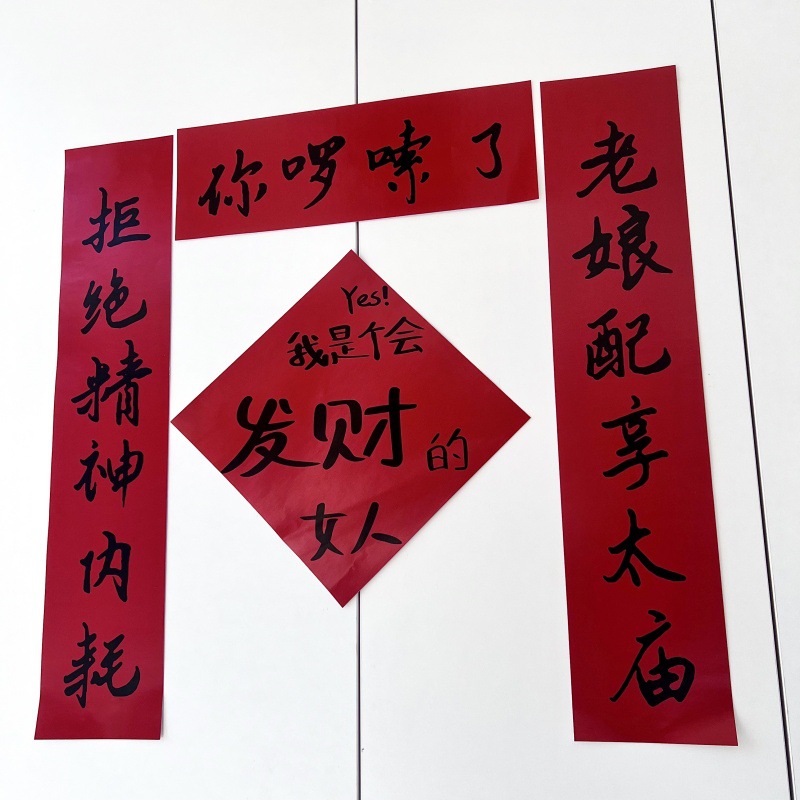 你啰嗦了
老娘配享太庙
拒绝精神内耗
Yes!
我是个会
发财的
女人